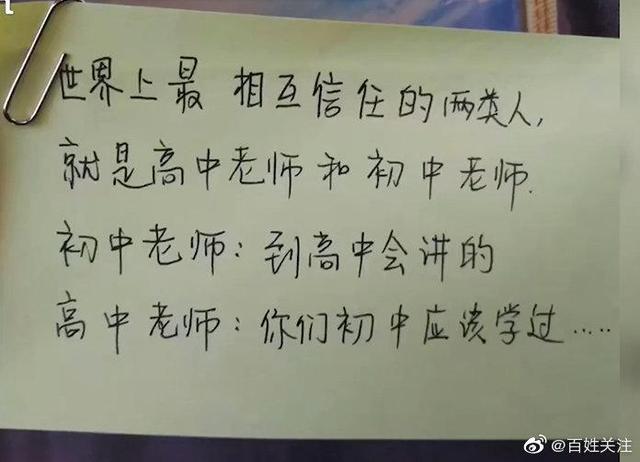 世界上最 相互信任的两类人,
就是高中老师和初中老师.
初中老师:到高中会讲的
高中老师:你们初中应该学过.....
@百姓关注